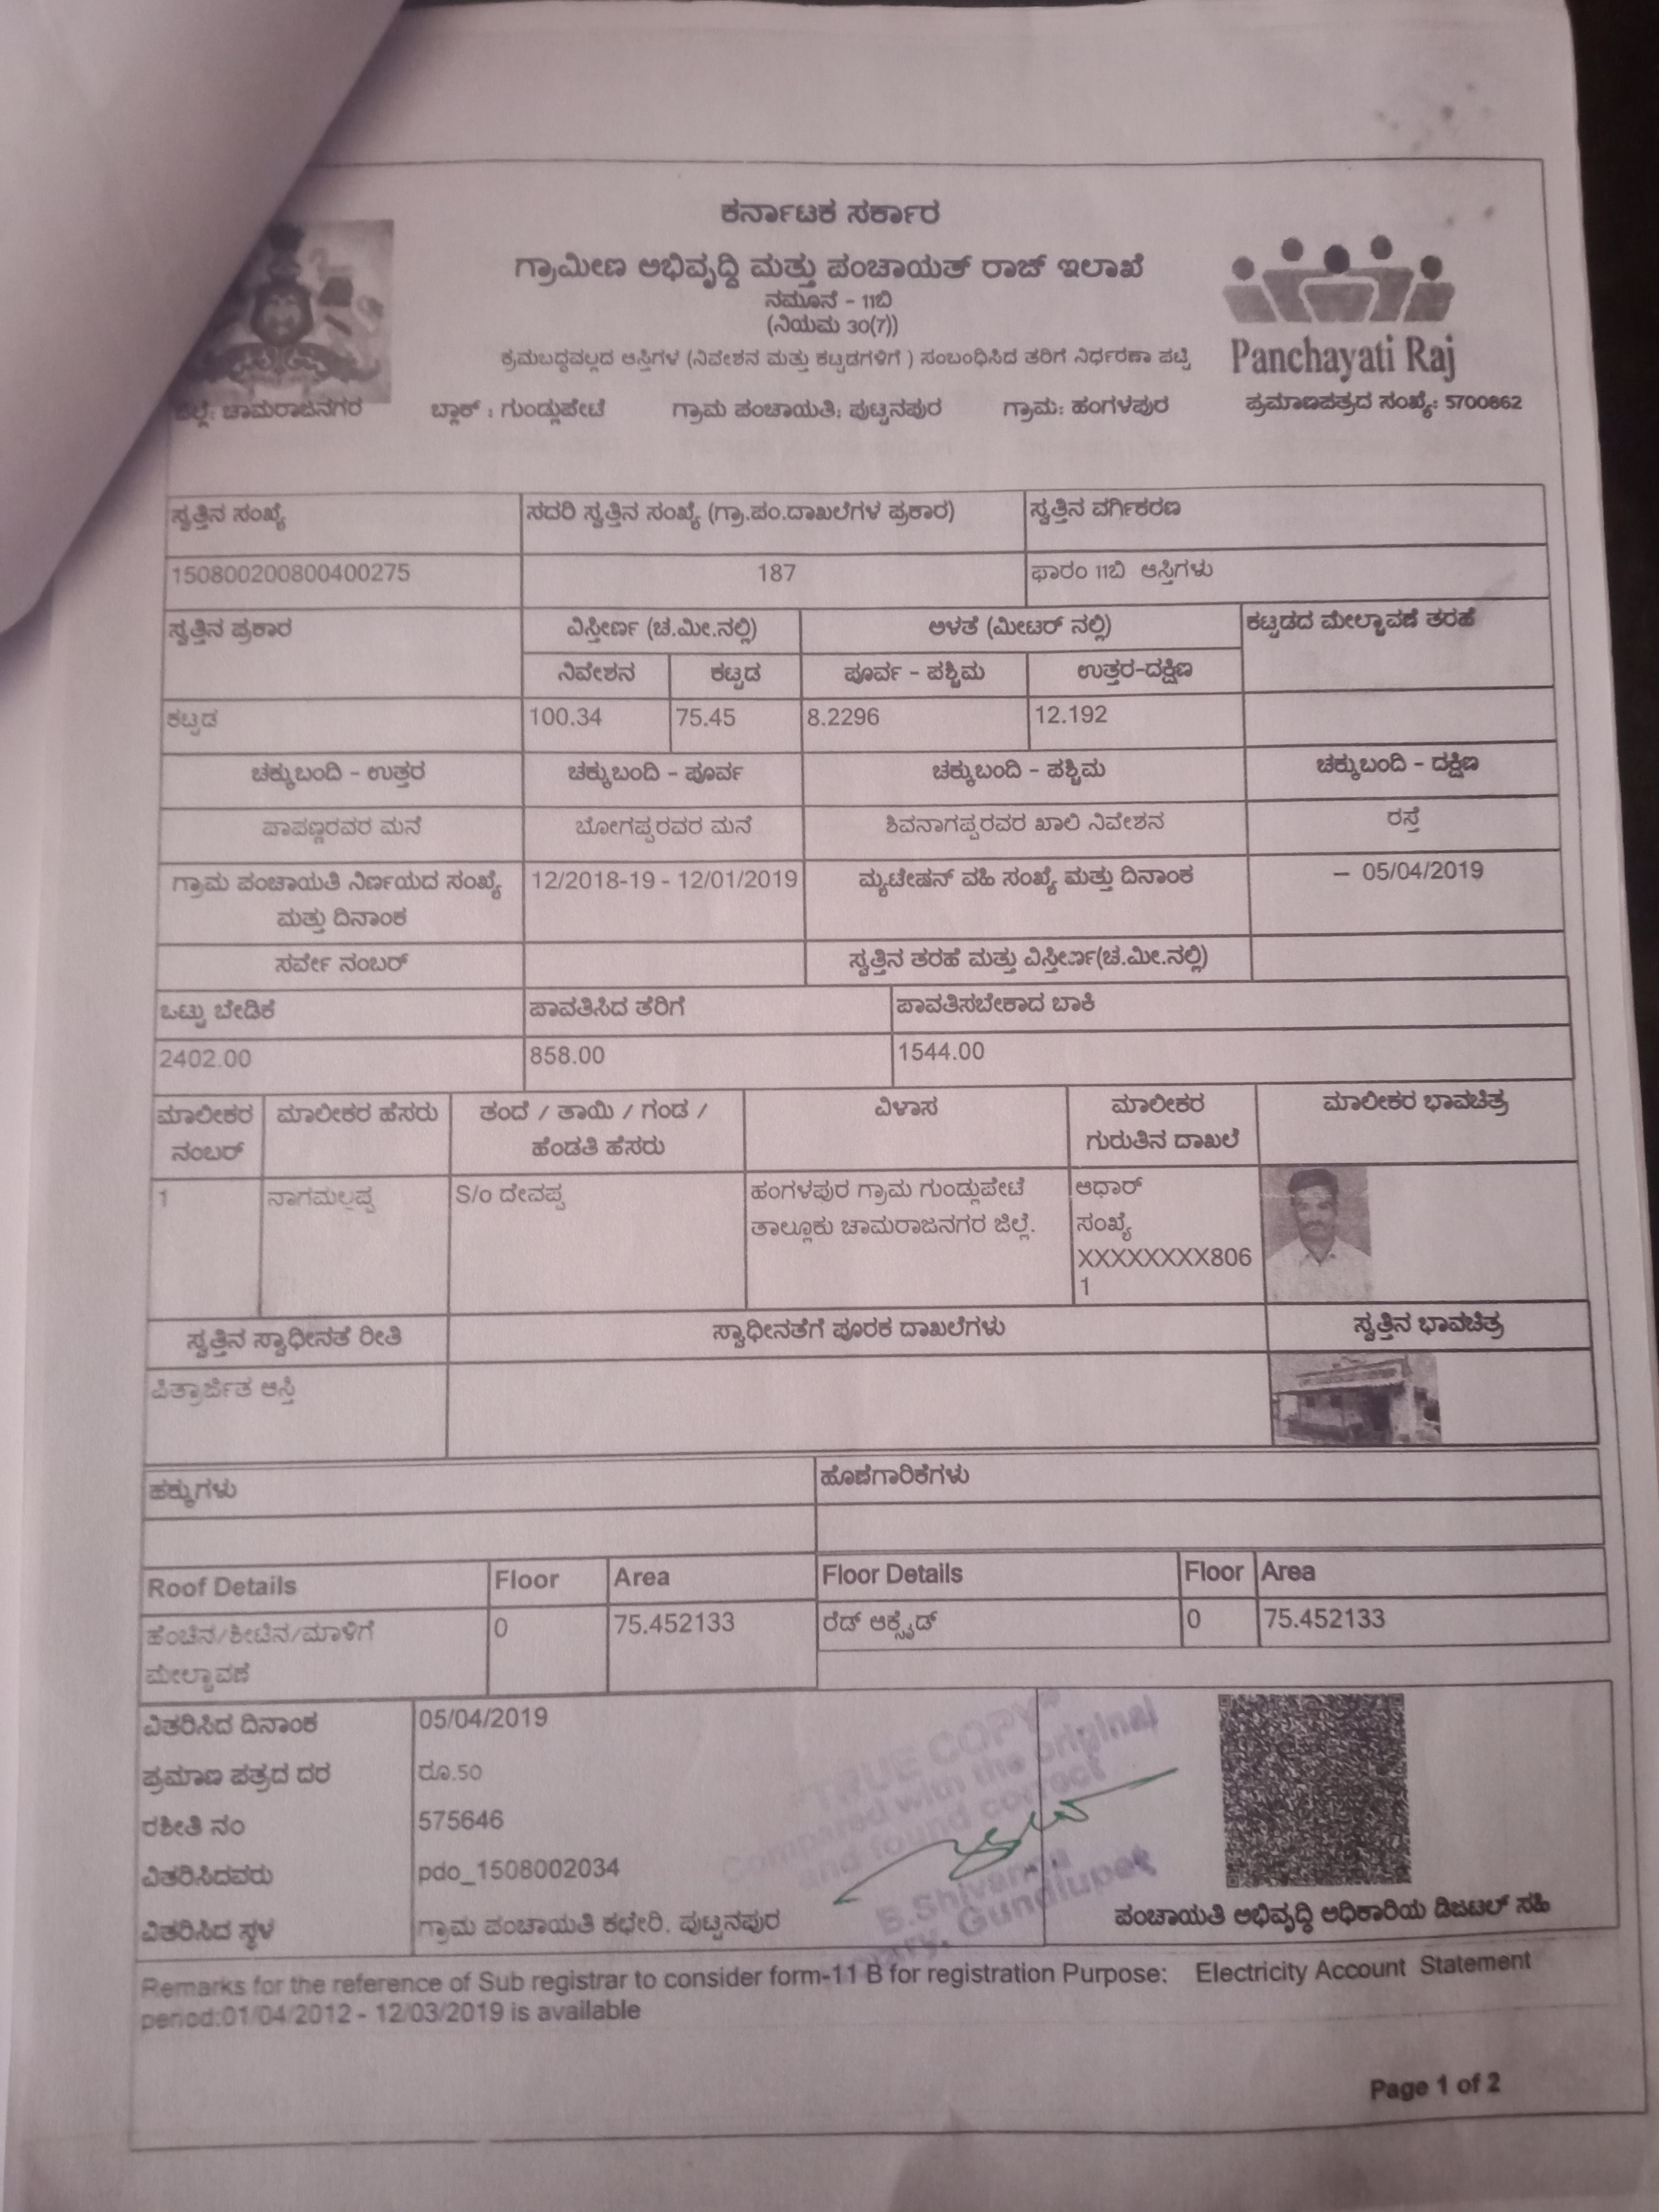 ಕರ್ನಾಟಕ ಸರ್ಕಾರ
ಗ್ರಾಮೀಣ ಅಭಿವೃದ್ಧಿ ಮತ್ತು ಪಂಚಾಯತ್ ರಾಜ್ ಇಲಾಖೆ
ನಮೂನೆ - 11ಬಿ
(ನಿಯಮ 30(7))
ಕ್ರಮಬದ್ಧವಲ್ಲದ ಆಸ್ತಿಗಳ (ನಿವೇಶನ ಮತ್ತು ಕಟ್ಟಡಗಳಿಗೆ ) ಸಂಬಂಧಿಸಿದ ತರಿಗೆ ನಿರ್ಧರಣಾ ಪಟ್ಟಿ
Panchayati Raj
ಜಿಲ್ಲೆ: ಚಾಮರಾಜನಗರ ಬ್ಲಾಕ್ : ಗುಂಡ್ಲುಪೇಟೆ ಗ್ರಾಮ ಪಂಚಾಯತಿ: ಪುಟ್ಟನಪುರ ಗ್ರಾಮ: ಹಂಗಳಪುರ ಪ್ರಮಾಣಪತ್ರದ ಸಂಖ್ಯೆ: 5700862
ಸ್ವತ್ತಿನ ಸಂಖ್ಯೆ ಸದರಿ ಸ್ವತ್ತಿನ ಸಂಖ್ಯೆ (ಗ್ರಾ.ಪಂ.ದಾಖಲೆಗಳ ಪ್ರಕಾರ) ಸ್ವತ್ತಿನ ವರ್ಗಿಕರಣ
150800200800400275 187 ಫಾರಂ 11ಬಿ ಆಸ್ತಿಗಳು
ಸ್ವತ್ತಿನ ಪ್ರಕಾರ ವಿಸ್ತೀರ್ಣ (ಚ.ಮೀ.ನಲ್ಲಿ) ಅಳತೆ (ಮೀಟರ್ ನಲ್ಲಿ) ಕಟ್ಟಡದ ಮೇಲ್ಚಾವಣೆ ತರಹೆ
ನಿವೇಶನ ಕಟ್ಟಡ ಪೂರ್ವ - ಪಶ್ಚಿಮ ಉತ್ತರ-ದಕ್ಷಿಣ
ಕಟ್ಟಡ 100.34 75.45 8.2296 12.192
ಚಕ್ಕುಬಂದಿ - ಉತ್ತರ ಚಕ್ಕುಬಂದಿ - ಪೂರ್ವ ಚಕ್ಕುಬಂದಿ - ಪಶ್ಚಿಮ ಚಕ್ಕುಬಂದಿ - ದಕ್ಷಿಣ
ಪಾಪಣ್ಣರವರ ಮನೆ ಬೋಗಪ್ಪರವರ ಮನೆ ಶಿವನಾಗಪ್ಪರವರ ಖಾಲಿ ನಿವೇಶನ ರಸ್ತೆ
ಗ್ರಾಮ ಪಂಚಾಯತಿ ನಿರ್ಣಯದ ಸಂಖ್ಯೆ 12/2018-19 - 12/01/2019 ಮ್ಯಟೇಷನ್ ವಹಿ ಸಂಖ್ಯೆ ಮತ್ತು ದಿನಾಂಕ – 05/04/2019
ಮತ್ತು ದಿನಾಂಕ
ಸರ್ವೇ ನಂಬರ್ ಸ್ವತ್ತಿನ ತರಹೆ ಮತ್ತು ವಿಸ್ತೀರ್ಣ(ಚ.ಮೀ.ನಲ್ಲಿ)
ಒಟ್ಟು ಬೇಡಿಕೆ ಪಾವತಿಸಿದ ತೆರಿಗೆ ಪಾವತಿಸಬೇಕಾದ ಬಾಕಿ
2402.00 858.00 1544.00
ಮಾಲೀಕರ ಮಾಲೀಕರ ಹೆಸರು ತಂದೆ / ತಾಯಿ / ಗಂಡ / ವಿಳಾಸ ಮಾಲೀಕರ ಮಾಲೀಕರ ಭಾವಚಿತ್ರ
ನಂಬರ್ ಹೆಂಡತಿ ಹೆಸರು ಗುರುತಿನ ದಾಖಲೆ
1 ನಾಗಮಲ್ಲಪ್ಪ S/o ದೇವಪ್ಪ ಹಂಗಳಪುರ ಗ್ರಾಮ ಗುಂಡ್ಲುಪೇಟೆ ಆಧಾರ್
ತಾಲ್ಲೂಕು ಚಾಮರಾಜನಗರ ಜಿಲ್ಲೆ. ಸಂಖ್ಯೆ
XXXXXXXX806
1
ಸ್ವತ್ತಿನ ಸ್ವಾಧೀನತೆ ರೀತಿ ಸ್ವಾಧೀನತೆಗೆ ಪೂರಕ ದಾಖಲೆಗಳು ಸ್ವತ್ತಿನ ಭಾವಚಿತ್ರ
ಪಿತ್ರಾರ್ಜಿತ ಆಸ್ತಿ
ಹಕ್ಕುಗಳು ಹೊಣೆಗಾರಿಕೆಗಳು
Roof Details Floor Area Floor Details Floor Area
ಹೆಂಚಿನ/ಶೀಟಿನ/ಮಾಳಿಗೆ 0 75.452133 ರೆಡ್ ಆಕ್ಸೈಡ್ 0 75.452133
ಮೇಲ್ಚಾವಣೆ
ವಿತರಿಸಿದ ದಿನಾಂಕ 05/04/2019
ಪ್ರಮಾಣ ಪತ್ರದ ದರ ರೂ.50
ರಶೀತಿ ನಂ 575646
ವಿತರಿಸಿದವರು pdo_1508002034
ವಿತರಿಸಿದ ಸ್ಥಳ ಗ್ರಾಮ ಪಂಚಾಯತಿ ಕಛೇರಿ. ಪುಟ್ಟನಪುರ
TRUE COPY
Compared with the original
and found correct
Gundlupet
ಪಂಚಾಯತಿ ಅಭಿವೃದ್ಧಿ ಅಧಿಕಾರಿಯ ಡಿಜಿಟಲ್ ಸಹಿ
Remarks for the reference of Sub registrar to consider form-11 B for registration Purpose: Electricity Account Statement
period:01/04/2012 - 12/03/2019 is available
Page 1 of 2